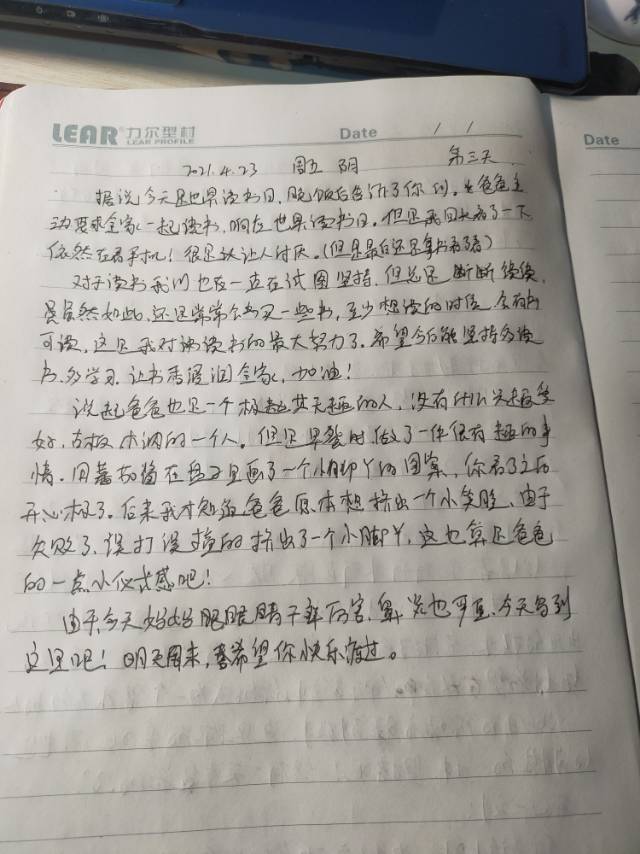 LEAR® 力尔型材
LEAR PROFILE
Date / /
Date
2021.4.23 周五 阴 第三天
据说今天是世界读书日,晚饭后告诉了你们,爸爸主
动要求全家一起读书,响应世界读书日。但是我回头看了一下
依然在看手机!很是让人讨厌。(但是最后还是拿书看了看)
对于读书我们也在一直在试图坚持,但总是断断续续,
虽然如此,还是常常会买一些书,至少想读的时候,会有书
可读,这是我对读书的最大努力了。希望今后能坚持多读
书,多学习,让书香浸润全家,加油!
说起爸爸也是一个极其无趣的人,没有什么兴趣爱
好,古板木讷的一个人。但是早餐时做了一件很有趣的事
情。用蕃茄酱在盘子里画了一个小脚丫的图案,你看了之后
开心极了。后来我才知道爸爸原本想挤出一个小笑脸,由于
失败了,误打误撞的挤出了一个小脚丫,这也算是爸爸
的一点小仪式感吧!
由于今天妈妈眼睛干涩厉害,鼻炎也严重,今天写到
这里吧!明天周末,希望你快乐度过。